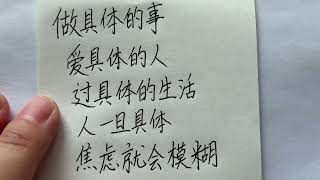 做具体的事
爱具体的人
过具体的生活
人一旦具体
焦虑就会模糊